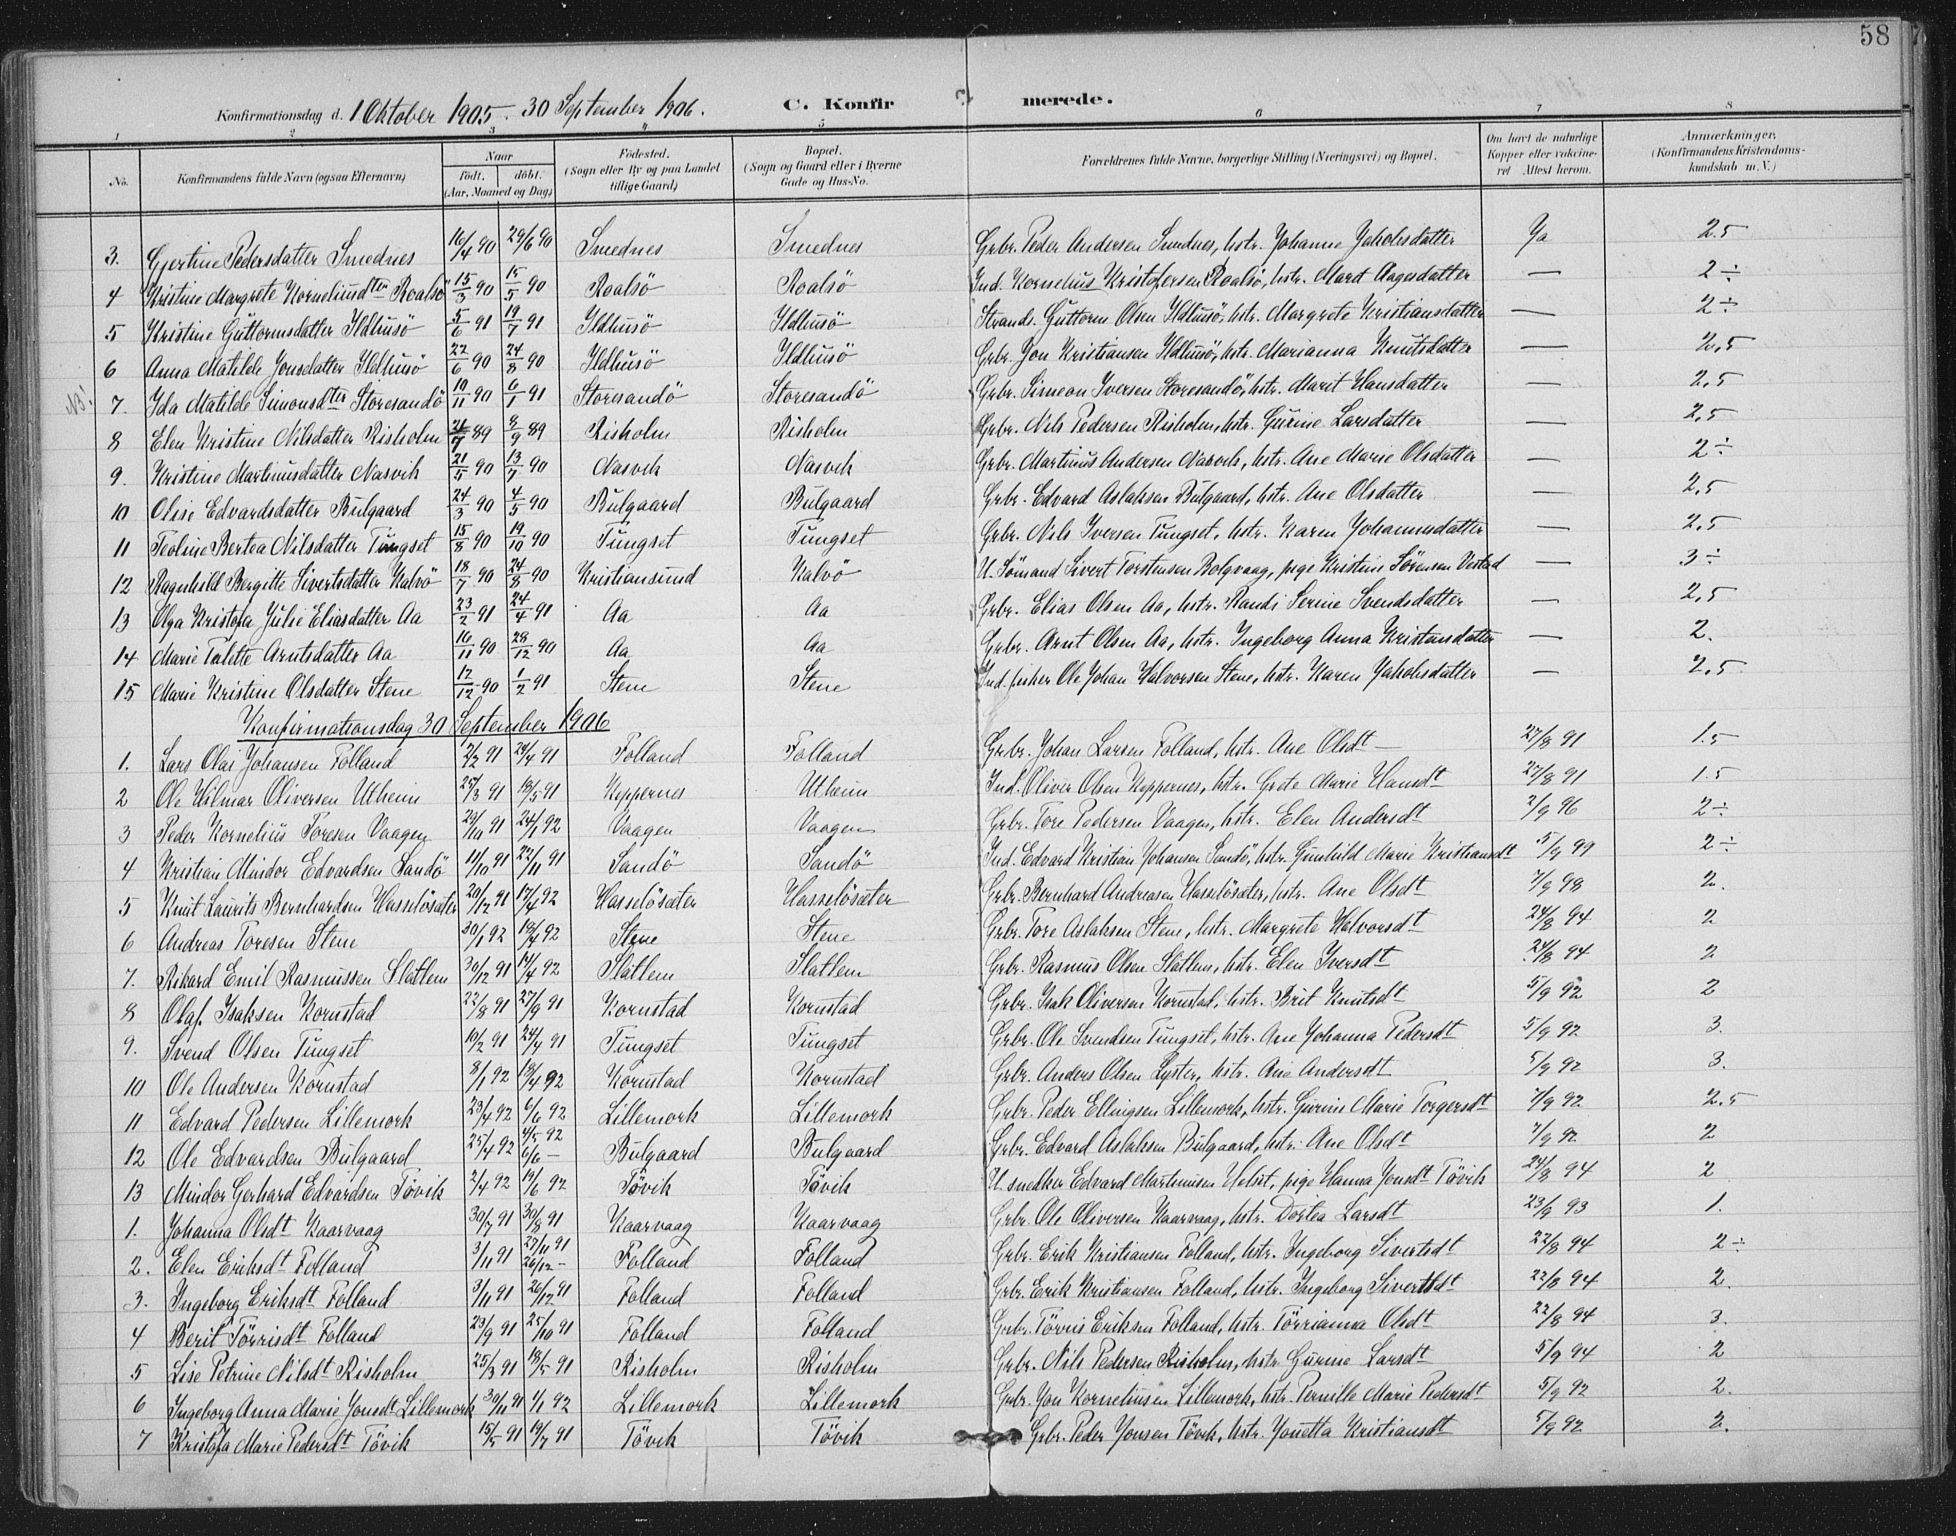 58
Konfirmationsdag d. 1 Oktober 1905 - 30 September 1906. C. Konfirmerede.
1 2 3 4 5 6 7 8
No. Konfirmandens fulde Navn (ogsaa Efternavn) Naar födt. döbt. (Aar, Maaned og Dag) Födested. (Sogn eller By og paa Landet tillige Gaard) Bopæl. (Sogn og Gaard eller i Byerne Gade og Hus-No. Forældrenes fulde Navne, borgerlige Stilling (Næringsvei) og Bopæl. Om havt de naturlige Kopper eller vakcineret Attest herom. Anmærkninger. (Konfirmandens Kristendomskundskab m. V.)
3. Gjertine Pedersdatter Smednes 16/4 90 29/6 90 Smednes Smednes Grbr. Peder Andersen Smednes, hstr. Johanne Jakobsdatter Ja 2.5
4 Kristine Margrete Korneliusdter Roalsö 15/3 90 15/5 90 Roalsö Roalsö Ind. Kornelius Kristofersen Roalsö, hstr. Marit Aagesdatter — 2÷
5 Kristine Guttormsdatter Ildhusö 5/6 91 19/7 91 Ildhusö Ildhusö Strands. Guttorm Olsen Ildhusö, hstr. Margrete Kristiansdatter — 2÷
6 Anna Matilde Jonsdatter Ildhusö 22/6 90 24/8 90 Ildhusö Ildhusö Grbr. Jon Kristiansen Ildhusö, hstr. Marianna Knutsdatter — 2,5
NB! 7. Ida Matilde Simonsdter Storesandö 10/11 90 6/1 91 Storesandö Storesandö Grbr. Simeon Iversen Storesandö, hstr. Marit Hansdatter — 2,5
8 Elen Kristine Nilsdatter Risholm 21/7 89 8/9 89 Risholm Risholm Grbr. Nils Pedersen Risholm, hstr. Gurine Larsdatter — 2,5
9. Kristine Martinusdatter Nasvik 21/5 90 13/7 90 Nasvik Nasvik Grbr. Martinus Andersen Nasvik, hstr. Ane Marie Olsdatter — 2÷
10 Olise Edvardsdatter Bulgaard 24/3 90 4/5 90 Bulgaard Bulgaard Grbr. Edvard Aslaksen Bulgaard, hstr. Ane Olsdatter — 2,5
11 Teoline Bertea Nilsdatter Tungset 15/8 90 19/10 90 Tungset Tungset Grbr. Nils Iversen Tungset, hstr. Karen Johannesdatter — 2,5
12 Ragnhild Bergitte Sivertsdatter Kalvö 18/7 90 24/8 90 Kristiansund Kalvö U. Sömand Sivert Torstensen Bolgvaag, pige Kristine Sörensen Vestad — 3÷
13 Olga Kristofa Julie Eliasdatter Aa 23/2 91 24/4 91 Aa Aa Grbr. Elias Olsen Aa, hstr. Randi Serine Svendsdatter — 2,5
14 Marie Talette Arntsdatter Aa 16/11 90 28/12 90 Aa Aa Grbr. Arnt Olsen Aa, hstr. Ingeborg Anna Kristensdatter — 2.
15 Marie Kristine Olsdatter Stene 12/12 90 1/2 91 Stene Stene Ind. fisher Ole Johan Halvorsen Stene, hstr. Karen Jakobsdatter — 2,5
Konfirmationsdag 30 September 1906
1. Lars Olai Johansen Folland 2/3 91 24/4 91 Folland Folland Grbr. Johan Larsen Folland, hstr. Ane Olsdt — 27/8 91 1.5
2 Ole Hilmar Oliversen Utheim 25/3 91 18/5 91 Keppernes Utheim Ind. Oliver Olsen Keppernes, hstr. Grete Marie Hansdt 25/8 91 1.5
3 Peder Kornelius Toresen Vaagen 29/10 91 24/1 92 Vaagen Vaagen Grbr. Tore Pedersen Vaagen, hstr. Elen Andersdt 2/9 96 2÷
4 Kristian Mindor Edvardsen Sandö 11/10 91 22/11 91 Sandö Sandö Ind. Edvard Kristian Johansen Sandö, hstr. Gunhild Marie Kristiansdt 5/9 99 2÷
5 Knut Laurits Bernhardsen Hasselösæter 20/12 91 17/4 92 Hasselösæter Hasselösæter Grbr. Bernhard Andreasen Hasselösæter, hstr. Ane Olsdt 7/9 98 2.
6 Andreas Toresen Stene 30/1 92 18/4 92 Stene Stene Grbr. Tore Aslaksen Stene, hstr. Margrete Halvorsdt 24/8 94 2
7. Rikard Emil Rasmussen Slatlem 30/12 91 14/4 92 Slatlem Slatlem Grbr. Rasmus Olsen Slatlem, hstr. Elen Iversdt 24/8 94 2
8 Olaf Isaksen Kornstad 22/8 91 27/9 91 Kornstad Kornstad Grbr. Isak Oliversen Kornstad, hstr. Brit Knutsdt 5/9 92 2
9. Svend Olsen Tungset 10/2 91 24/4 91 Tungset Tungset Grbr. Ole Svendsen Tungset, hstr. Ane Johanna Pedersdt 5/9 92 3.
10 Ole Andersen Kornstad 8/1 92 18/4 92 Kornstad Kornstad Grbr. Anders Olsen Lyster, hstr. Ane Andersdt 5/9 92 3.
11 Edvard Pedersen Lillemork 23/4 92 6/6 92 Lillemork Lillemork Grbr. Peder Ellingsen Lillemork, hstr. Gurine Marie Torgersdt 7/9 92 2.5
12 Ole Edvardsen Bulgaard 25/4 92 4/5 92 6/6 — Bulgaard Bulgaard Grbr. Edvard Aslaksen Bulgaard, hstr. Ane Olsdt 7/9 92 2
13 Mindor Gerhard Edvardsen Tövik 2/4 92 19/6 92 Tövik Tövik U. snedker Edvard Martinusen Helset, pige Hanna Jonsdt Tövik 24/8 94 2
1. Johanna Olsdt Kaarvaag 30/7 91 30/8 91 Kaarvaag Kaarvaag Grbr. Ole Oliversen Kaarvaag, hstr. Dortea Larsdt 23/8 93 1.
2. Elen Eriksdt Folland 3/11 91 27/11 91 26/12 — Folland Folland Grbr. Erik Kristiansen Folland, hstr. Ingeborg Sivertsdt 22/8 94 2÷
3. Ingeborg Eriksdt Folland 3/11 91 26/12 91 Folland Folland Grbr. Erik Kristiansen Folland, hstr. Ingeborg Sivertsdt 22/8 94 2.
4 Berit Törrisdt Folland 23/9 91 25/10 91 Folland Folland Grbr. Törris Eriksen Folland, hstr. Törrianna Olsdt 22/8 94 3.
5 Lise Petrine Nilsdt Risholm 25/3 91 18/5 91 Risholm Risholm Grbr. Nils Pedersen Risholm, hstr. Gurine Larsdt 5/9 94 2
6 Ingeborg Anna Marie Jonsdt Lillemork 30/11 91 1/1 92 Lillemork Lillemork Grbr. Jon Korneliusen Lillemork, hstr. Pernille Marie Pedersdt 5/9 92 2.
7 Kristofa Marie Pedersdt Tövik 15/5 91 19/7 91 Tövik Tövik Grbr. Peder Jonsen Tövik, hstr. Jonetta Kristiansdt 5/9 92 2.